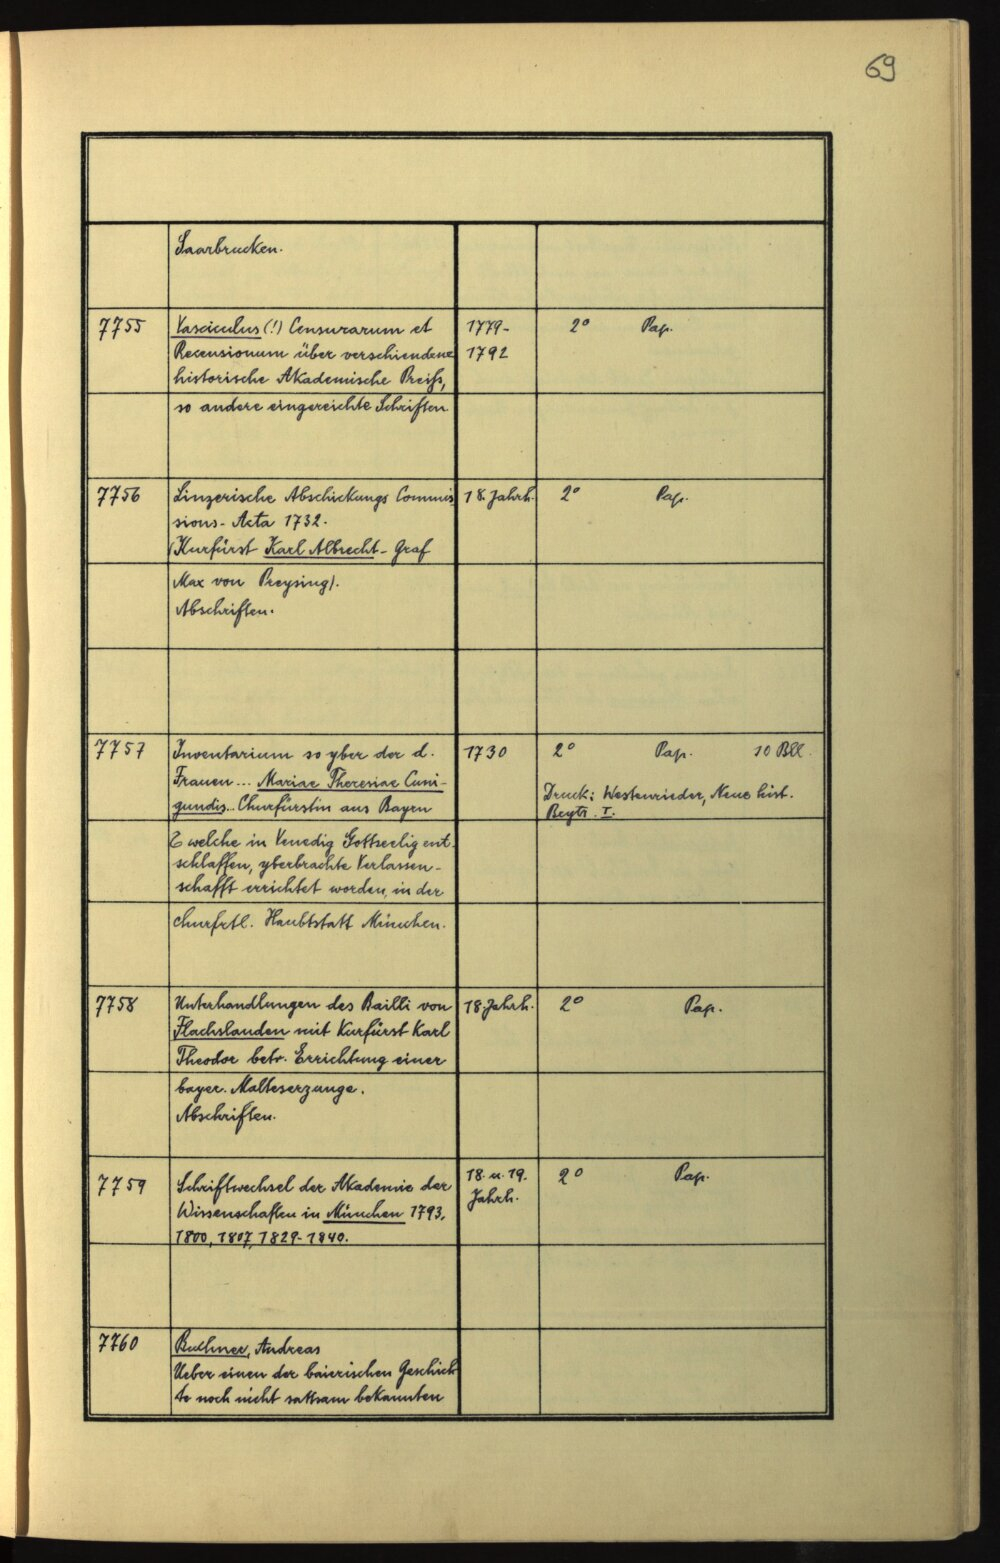 69
Saarbrucken.
7755 Vasciculus (!) Censurarum et 1779- 2° Pap.
Recensionum über verschiendene 1792
historische Akademische Preiss,
so andere eingereichte Schriften.
7756 Linzerische Abschickungs Commis 18. Jahrh. 2° Pap.
sions- Acta 1732.
(Kurfürst Karl Albrecht - Graf
Max von Preysing).
Abschriften.
7757 Inventarium so yber der d. 1730 2° Pap. 10 Bll.
Frauen... Mariae Theresiae Cuni-
gundis.. Churfürstin aus Bayrn
Druck: Westenrieder, Neue hist.
Beytr. I.
welche in Venedig Gottseelig ent-
schlaffen, yberbrachte Verlassen-
schafft errichtet worden, in der
churfrtl. Haubtstatt München.
7758 Unterhandlungen des Bailli von 18. Jahrh. 2° Pap.
Flachslanden mit Kurfürst Karl
Theodor betr. Errichtung einer
bayer. Malteserzunge.
Abschriften.
7759 Schriftwechsel der Akademie der 18. u. 19. 2° Pap.
Wissenschaften in München 1793, Jahrh.
1800, 1807, 1829-1840.
7760 Buchner, Andreas
Ueber einen der baierischen Geschich
te noch nicht sattsam bekannten